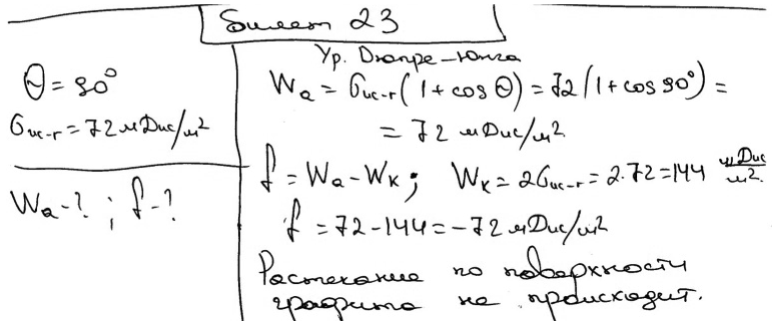 Билет 23
θ = 90°
σж-г = 72 мДж/м²
Wa - ? ; f - ?
Ур. Дюпре-Юнга
Wa = σж-г (1 + cos θ) = 72 (1 + cos 90°) =
= 72 мДж/м²
f = Wa - Wк ; Wк = 2σж-г = 2·72 = 144 мДж/м².
f = 72 - 144 = -72 мДж/м²
Растекание по поверхности
графита не происходит.